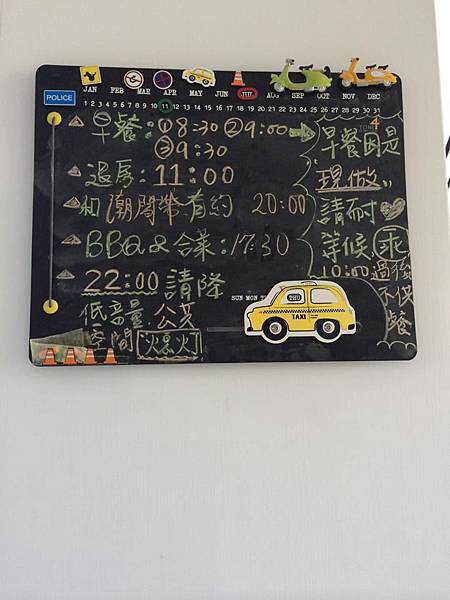 JAN FEB MAR APR MAY JUN AUG SEP OCT NOV DEC
POLICE
1 2 3 4 5 6 7 8 9 10 11 12 13 14 15 16 17 18 19 20 21 22 23 24 25 26 27 28 29 30 31
早餐:①8:30 ②9:00
③9:30
退房:11:00
和潮間帶有約 20:00
BBQ&合菜:17:30
22:00請降
低音量 公共
空間 爆火
早餐因是
"現做"
請耐
等候,乖
10:00過後
不供
餐
SUN MON
TAXI